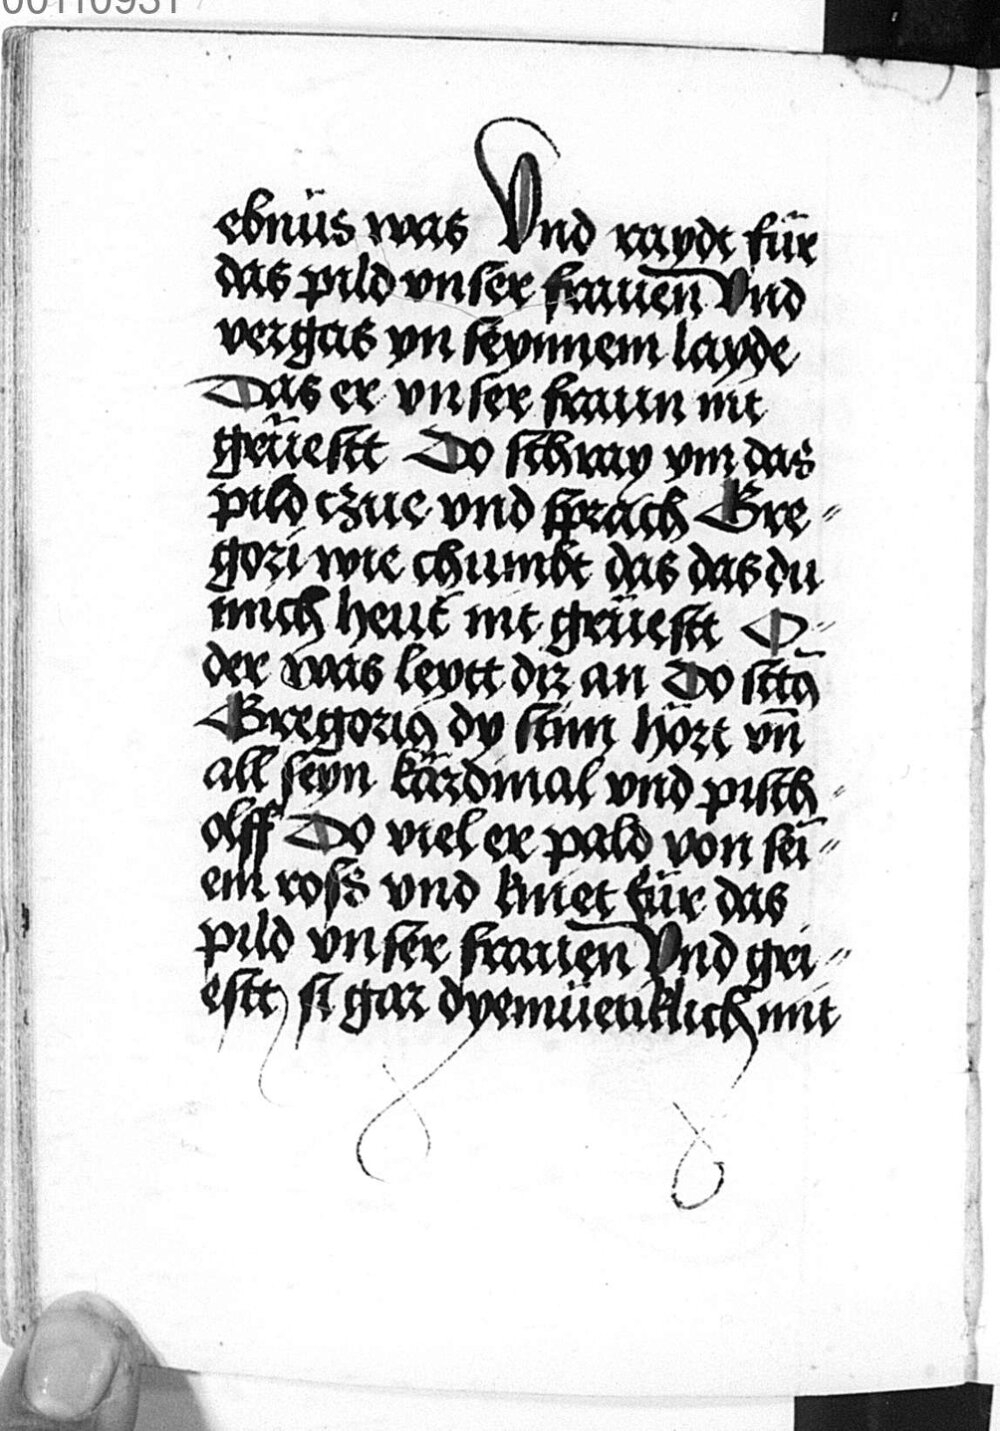 00110931
ebnüs was Vnd raydt für
das pild vnser frauen Vnd
vergas yn seynnem layde
Das er vnser fraun nit
grüestt Do schray ym das
pild czue vnd sprach Gre⸗
gori wie chumbt das das du
mich heut nit grüestt O⸗
der was leytt dir an Do sttā
Gregoriꝰ dy stim hört vn̄
all seyn kärdinal vnd pisch⸗
olff Do viel er pald von sei⸗
em ross vnd kniet für das
pild vnser frauen Vnd gri⸗
estt si gar dyemüetiklich mit